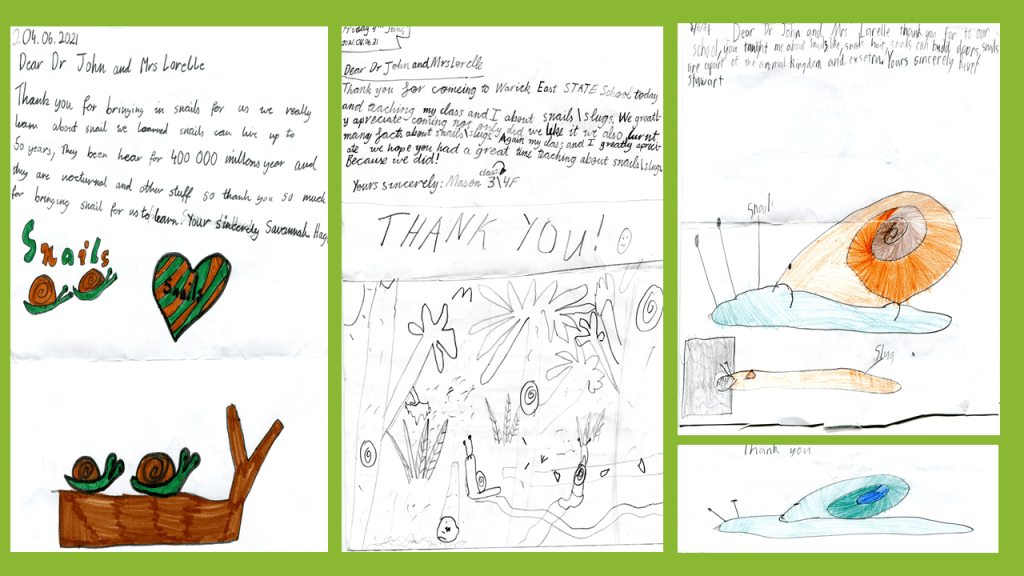 04.06.2021
Dear Dr John and Mrs Lorelle
Thank you for bringing in snails for us we really
learn about snail we learned snails can live up to
50 years, They been hear for 400 000 millons year and
they are nocturnal and other stuff so thank you so much
for bringing snail for us to learn. Your sincerely Savannah Hag
Snails
Snails
Friday 4th June,
Dear Dr John and Mrs Lorelle
Thank you for comeing to Warick East STATE School today
and teaching my class and I about snails\slugs. We greatl-
y apreciate coming not only did we like it we also lurnt
many facts about snails\slugs. Again my class and I greatly aprici-
ate we hope you had a great time teaching about snails\slugs
Because we did!
class
Yours sincerely: Mason 3\4F
THANK YOU!
Dear Dr John and Mrs Lorelle thank you for to our
school, you taught me about snails like, snails hair, snails can build doors, snails
are apart of the animal kingdom and Yours sincerely
stewart
snail
Slug
Thank you